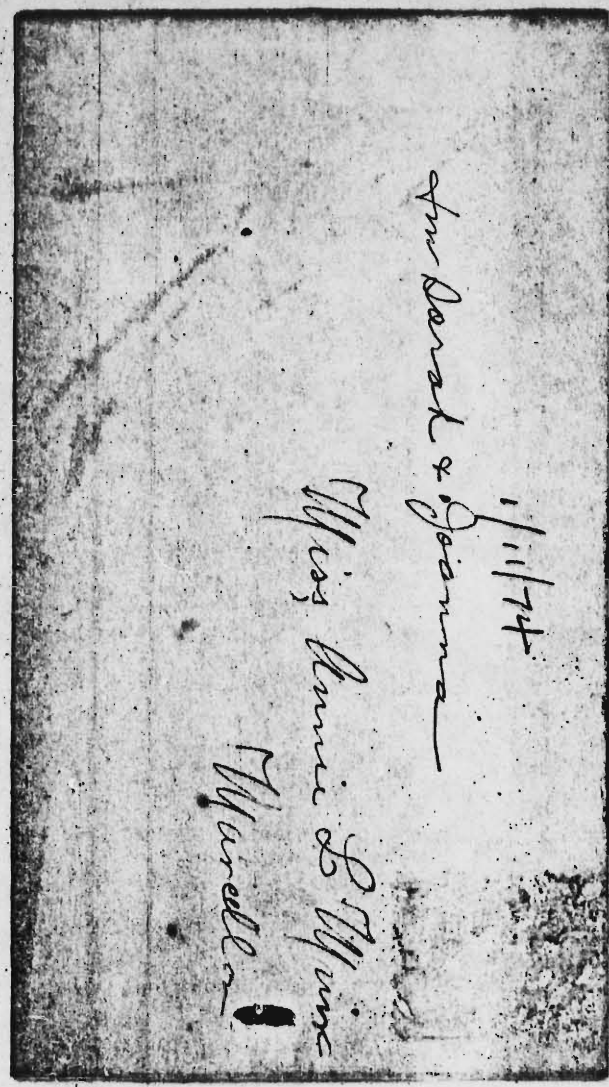 1/11/74
Sarah & Joanna
Miss Annie L
Marcella